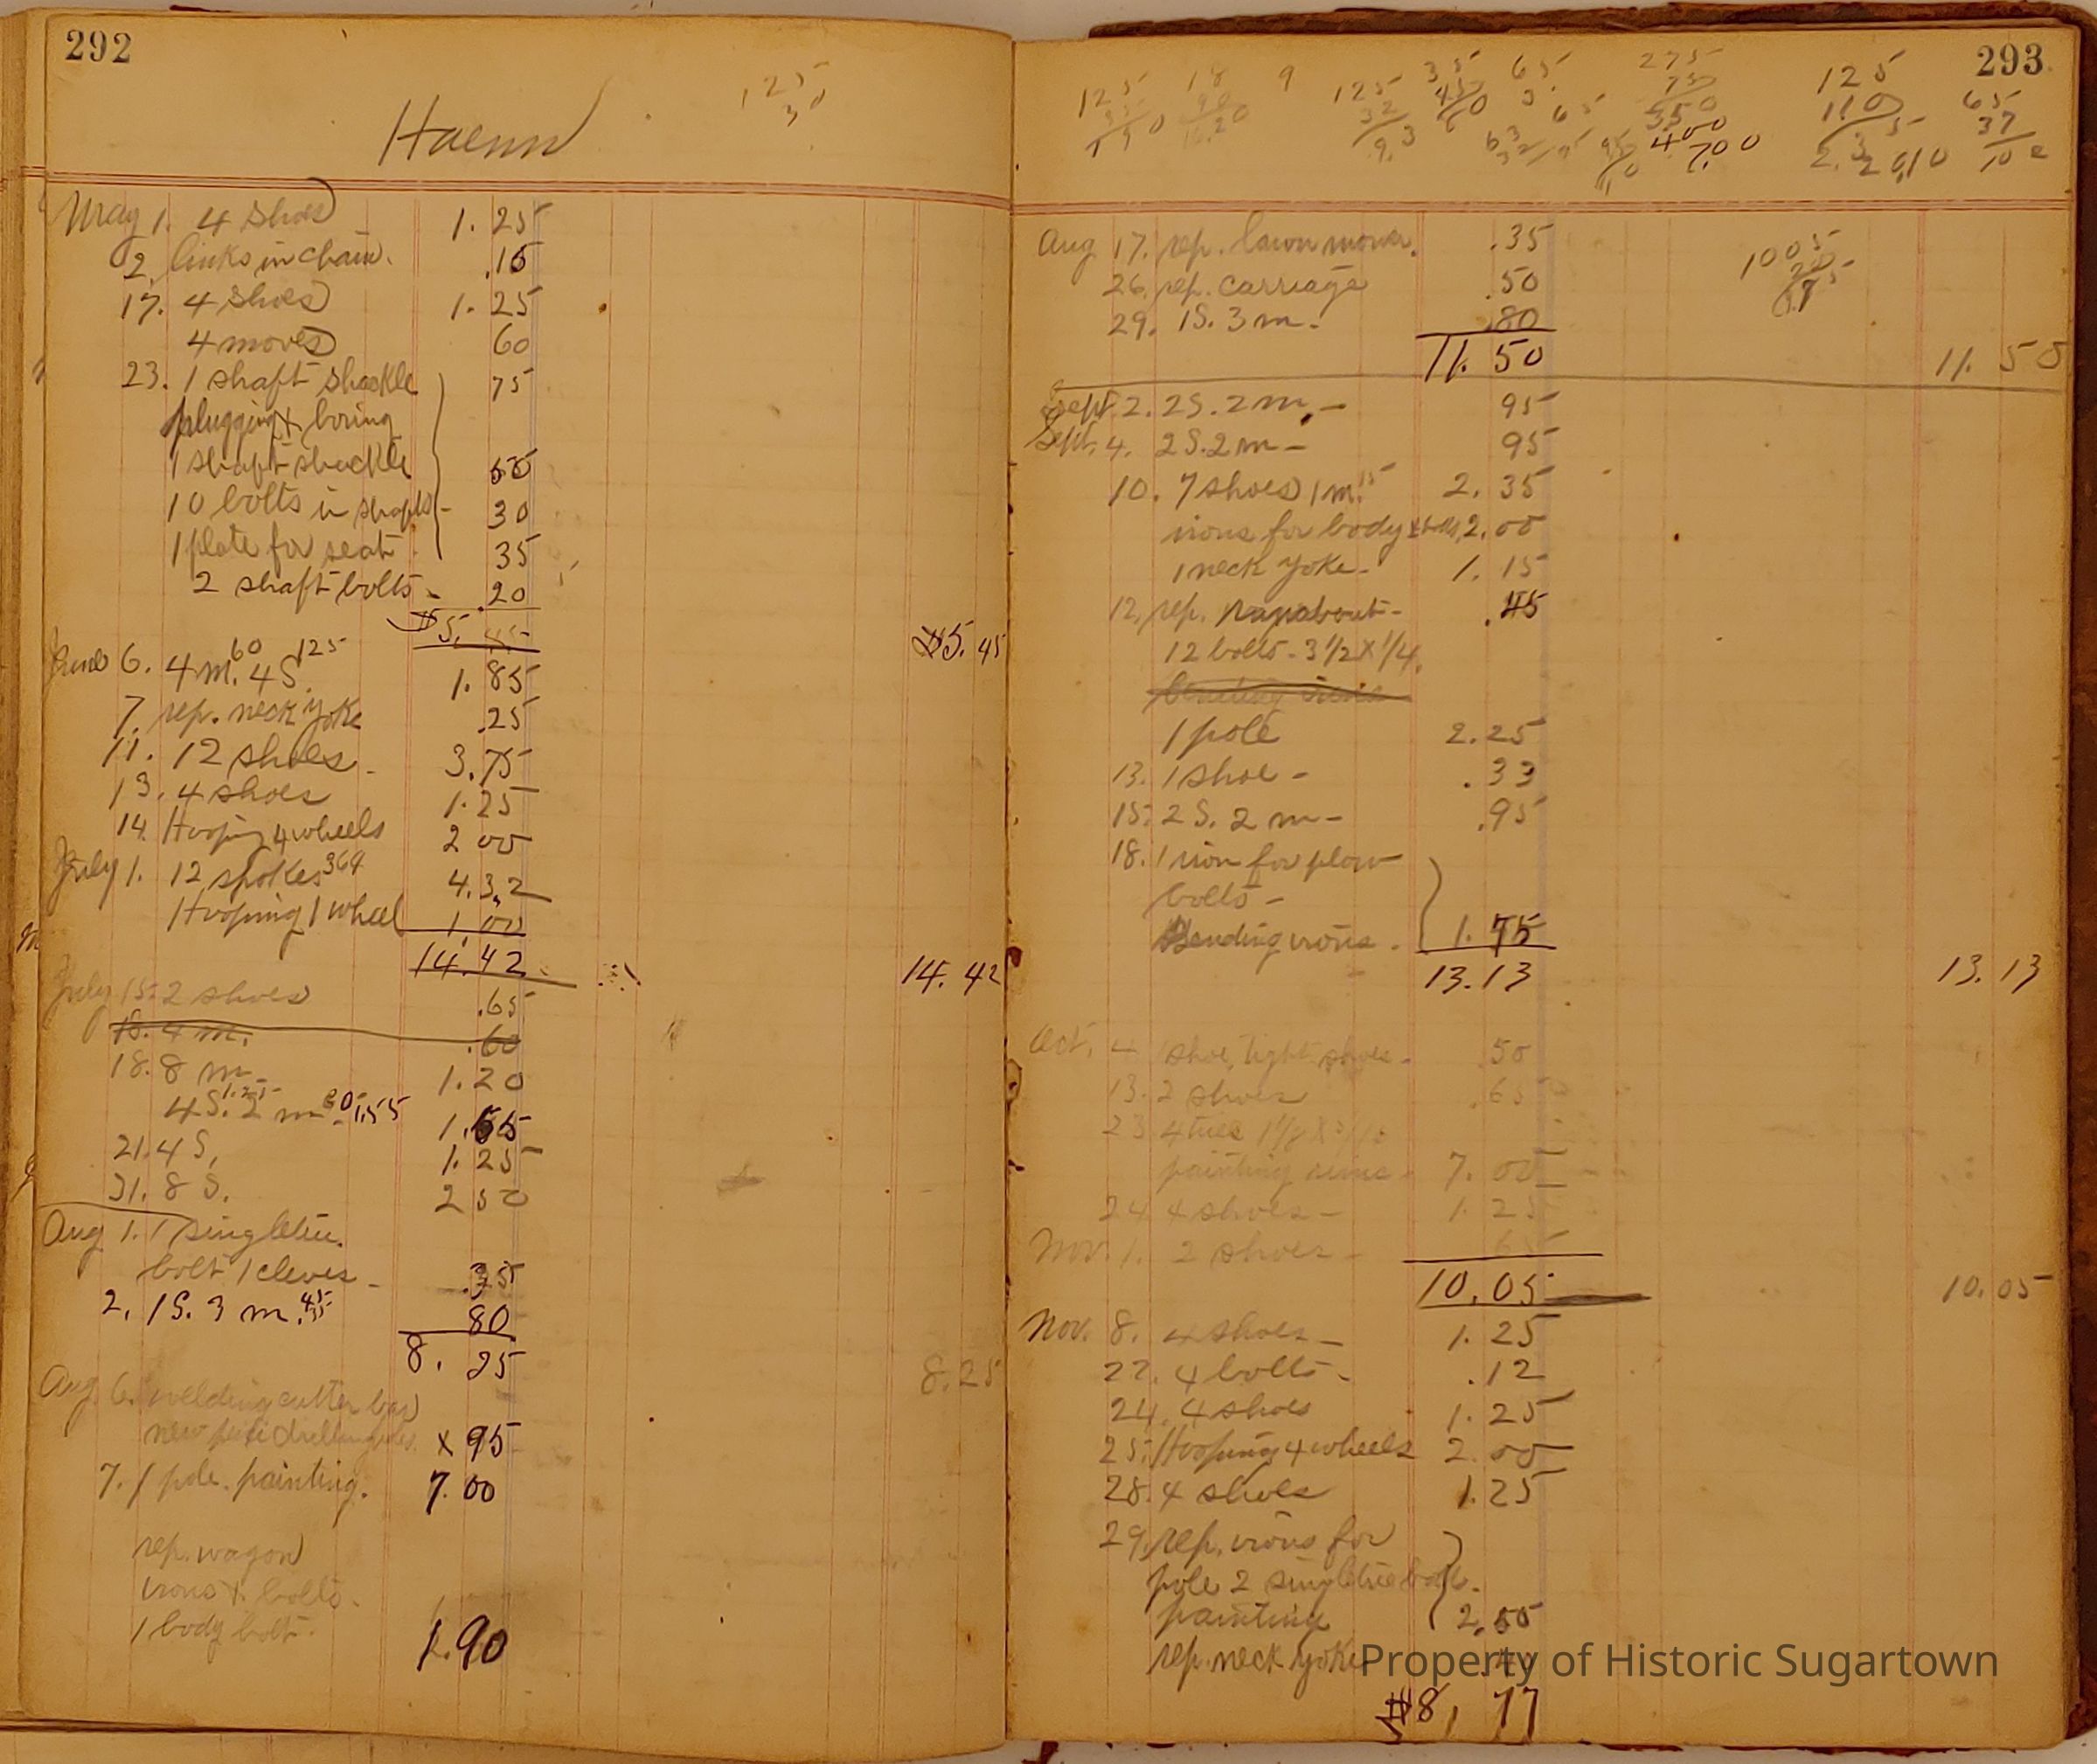 292
Haenn
125
30
May 1. 4 shoes 1. 25
2. links in chain. .15
17. 4 shoes 1. 25
4 moves 60
23. 1 shaft shackle 75
plugging & boring
1 shaft shackle 55
10 bolts in shafts - 30
1 plate for seat 35
2 shaft bolts - .20
$5. 45 $5. 45
June 6. 4 m. 60 4 S. 125 1. 85
7. rep. neck yoke .25
11. 12 shoes. 3.75
13. 4 shoes 1.25
14. Hooping 4 wheels 2 00
July 1. 12 spokes 36¢ 4.32
Hooping 1 wheel 1.00
14.42 14.42
July 15. 2 shoes .65
18. 4 m. .60
18. 8 m 1.20
4 S. 1.25 2 m 30 1.55 1.55
21. 4 S. 1.25
31. 8 S. 2 50
Aug 1. 1 singletree.
bolt 1 cleves - .35
2. 1 S. 3 m. 45 35 80
8. 25 8.25
Aug. 6. welding cutter bar
new drilling x 95
7. 1 pole. painting. 7.00
rep. wagon
irons & bolts.
1 body bolt. 1.90
293
125 18 9 125 35 65 275 125 65
110 37
400
7.00
Aug 17. rep. lawn mower. .35
26. rep. carriage .50
29. 1 S. 3 m. .80
11. 50 11. 50
1005
Sept. 2. 2 S. 2 m. - 95
Sept. 4. 2 S. 2 m - 95
10. 7 shoes 1 m. 15 2. 35
irons for body 2.00
1 neck yoke - 1. 15
12. rep. runabout - .45
12 bolts - 3 1/2 x 1/4.
1 pole 2.25
13. 1 shoe - .33
15. 2 S. 2 m - .95
18. 1 iron for plow
bolts -
Bending irons. 1.75
13.13 13.13
Oct. 4 1 shoe, tight shoes - .50
13. 2 shoes .65
23 4 tires
painting rims - 7. 00
24 4 shoes - 1. 25
Nov. 1. 2 shoes - 65
10.05 10.05
Nov. 8. 4 shoes - 1. 25
22. 4 bolts - .12
24. 4 shoes 1. 25
25. Hooping 4 wheels 2.00
28. 4 shoes 1.25
29. rep. irons for
pole 2 singletree
painting 2.50
rep. neck yoke
$8. 77
Property of Historic Sugartown